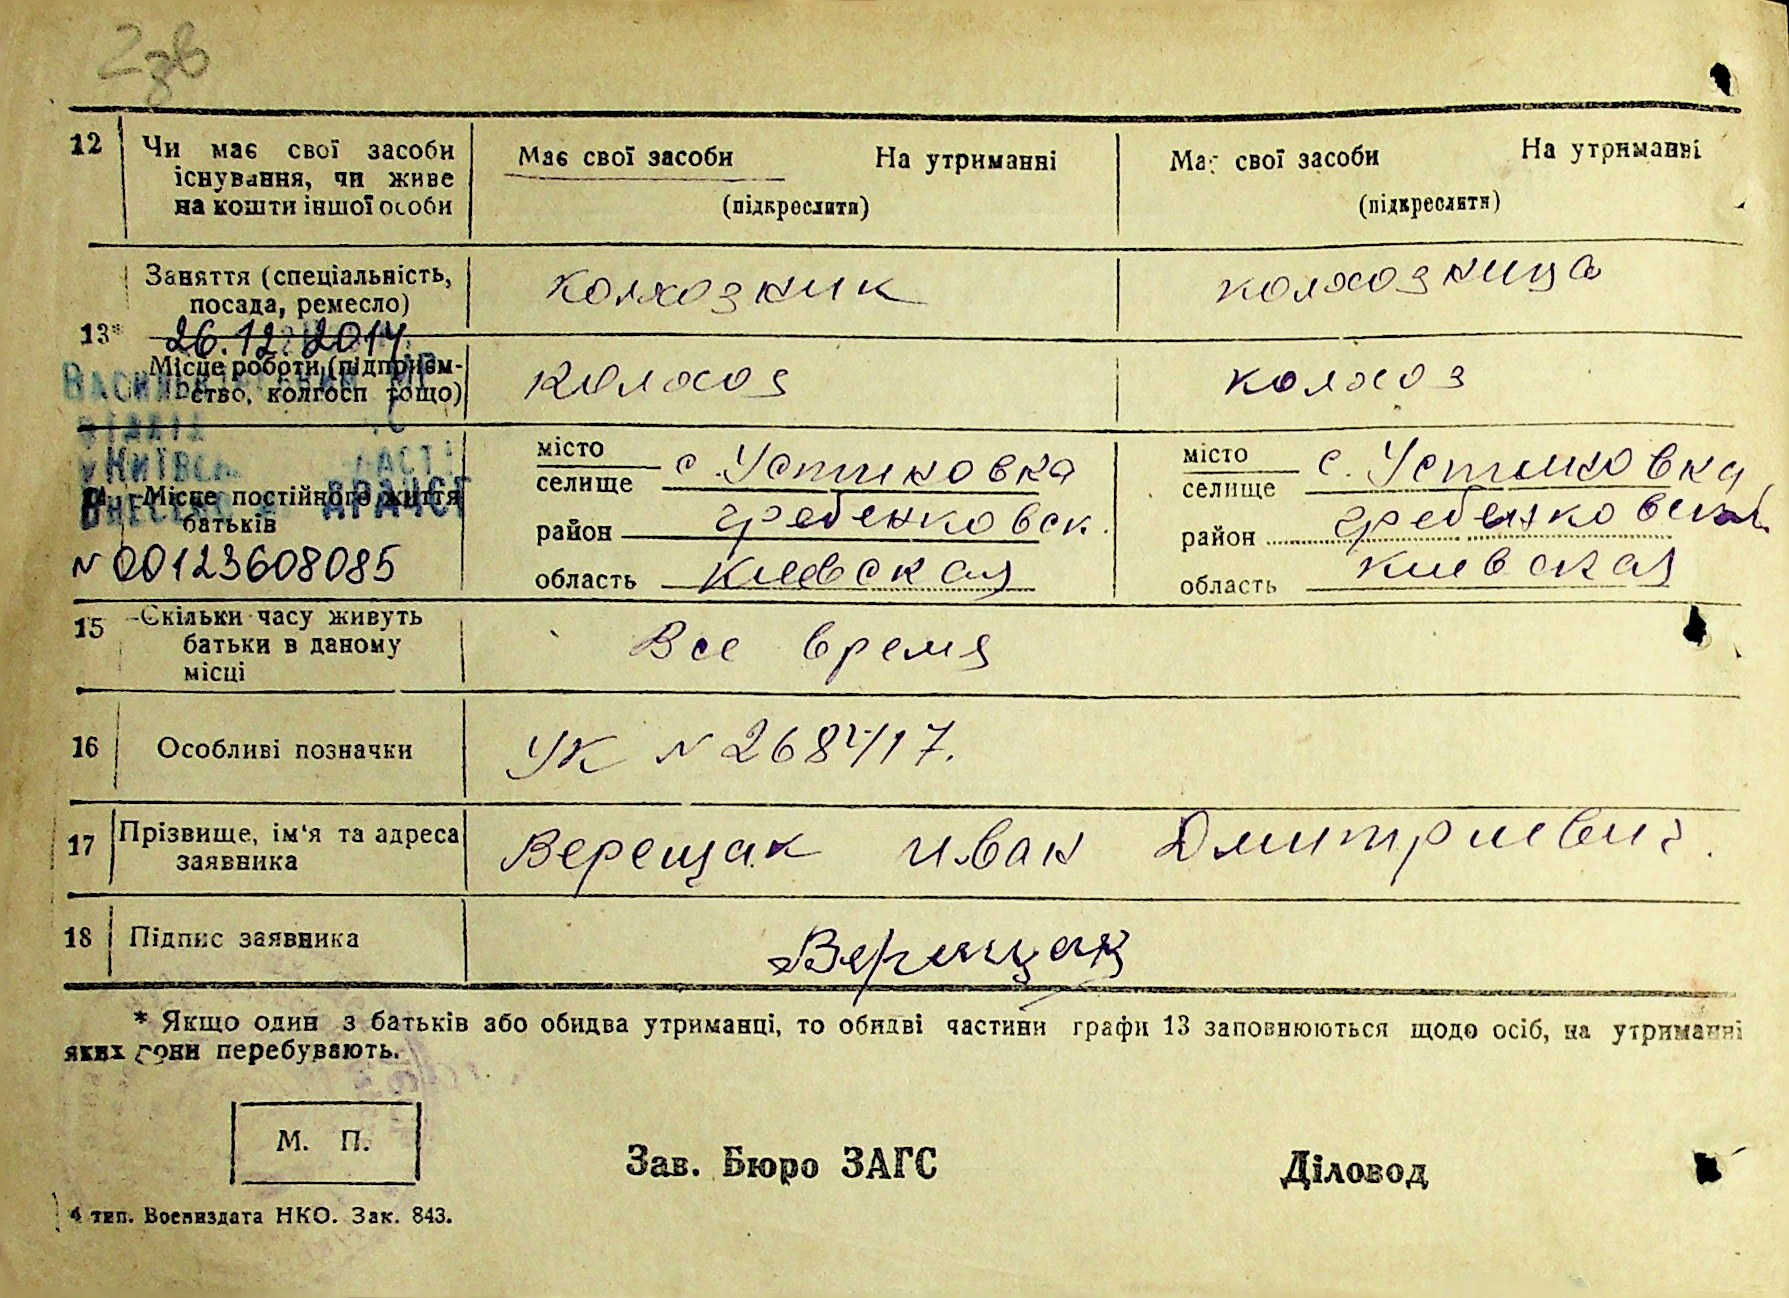 2зв
12 Чи має свої засоби існування, чи живе на кошти іншої особи
Має свої засоби На утриманні
(підкреслити)
Ма свої засоби На утриманні
(підкреслити)
Заняття (спеціальність, посада, ремесло)
колхозник
колхозница
13*
26.12.2014
Місце роботи (підприєм-
ство, колгосп тощо)
колхоз
колхоз
Місце постійного життя
батьків
місто
селище
с. Устиновка
район
гребенковск.
область
киевская
місто
селище
с. Устиновка
район
гребенковск
область
киевская
ДРАЦСГ
N 00123608085
15 Скільки часу живуть
батьки в даному
місці
Все время
16 Особливі позначки
УК N 2684117.
17 Прізвище, ім'я та адреса
заявника
Верещак Иван Дмитриевич.
18 Підпис заявника
Верещак
* Якщо один з батьків або обидва утриманці, то обидві частини графи 13 заповнюються щодо осіб, на утриманні
яких вони перебувають.
М. П.
Зав. Бюро ЗАГС
Діловод
4 тип. Воениздата НКО. Зак. 843.